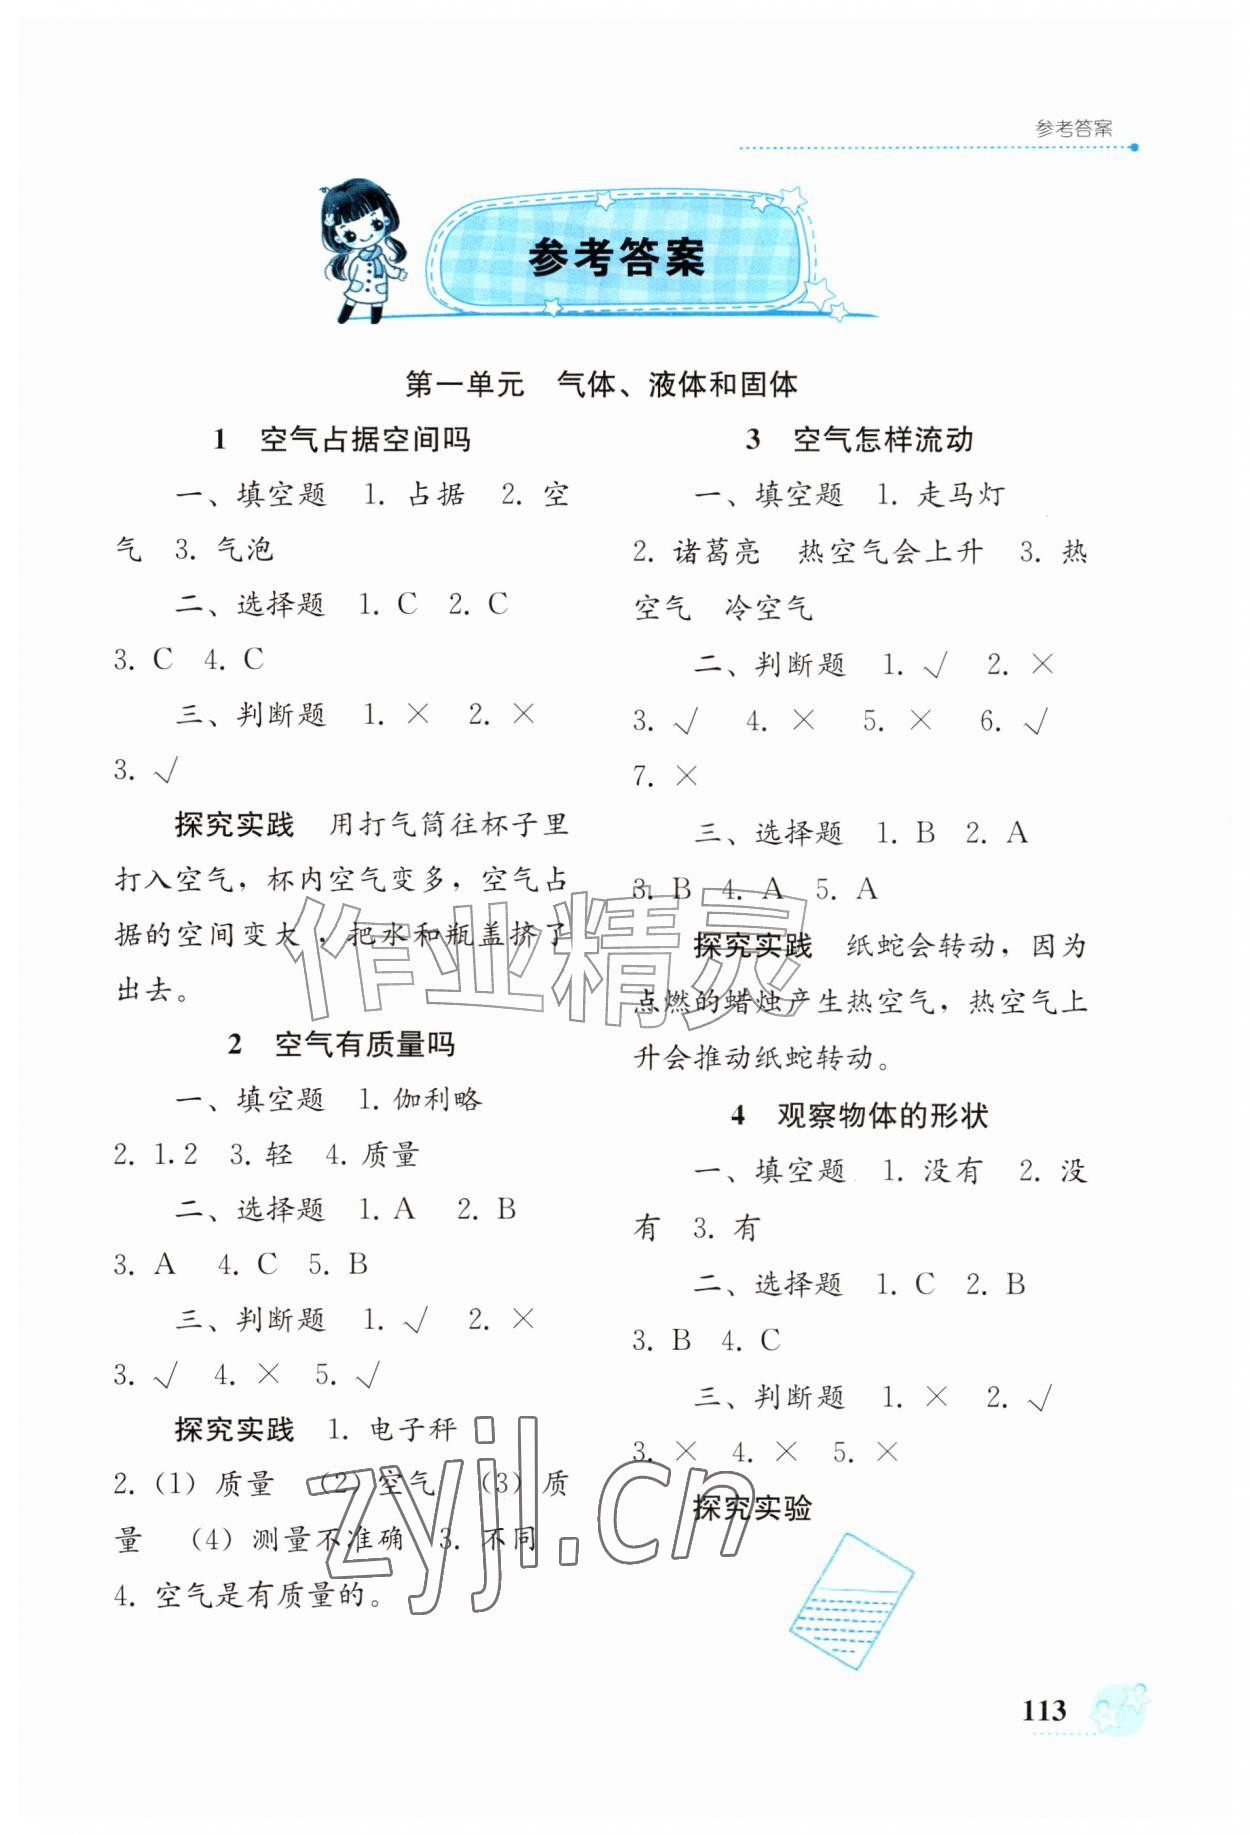 参考答案
参考答案
第一单元 气体、液体和固体
1 空气占据空间吗
一、填空题 1. 占据 2. 空
气 3. 气泡
二、选择题 1. C 2. C
3. C 4. C
三、判断题 1. × 2. ×
3. √
探究实践 用打气筒往杯子里
打入空气，杯内空气变多，空气占
据的空间变大，把水和瓶盖挤了
出去。
2 空气有质量吗
一、填空题 1. 伽利略
2. 1.2 3. 轻 4. 质量
二、选择题 1. A 2. B
3. A 4. C 5. B
三、判断题 1. √ 2. ×
3. √ 4. × 5. √
探究实践 1. 电子秤
2.（1）质量 （2）空气 （3）质
量 （4）测量不准确 3. 不同
4. 空气是有质量的。
3 空气怎样流动
一、填空题 1. 走马灯
2. 诸葛亮 热空气会上升 3. 热
空气 冷空气
二、判断题 1. √ 2. ×
3. √ 4. × 5. × 6. √
7. ×
三、选择题 1. B 2. A
3. B 4. A 5. A
探究实践 纸蛇会转动，因为
点燃的蜡烛产生热空气，热空气上
升会推动纸蛇转动。
4 观察物体的形状
一、填空题 1. 没有 2. 没
有 3. 有
二、选择题 1. C 2. B
3. B 4. C
三、判断题 1. × 2. √
3. × 4. × 5. ×
探究实验
作业精灵
zyjl.cn
113